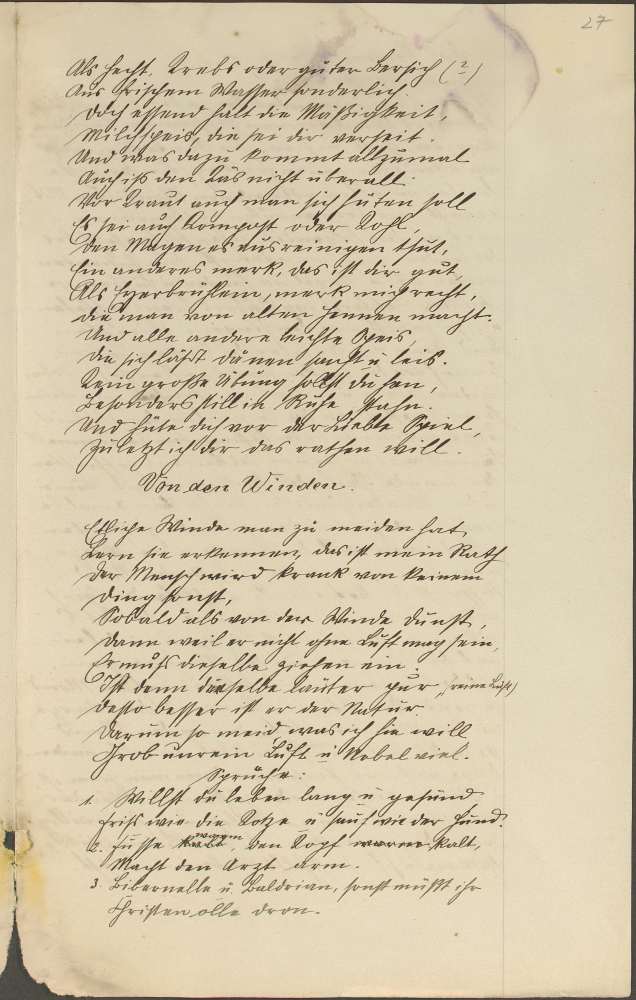 27
Als Hecht, Krebs oder guter Bersich (?)
Aus frischem Wasser sonderlich.
Doch essend halt die Mäßigkeit,
Milchspeis, die sei dir verseit.
Und was dazu kommt allzumal
Auch iß den Käs nicht überall.
Vor Kraut auch man sich hüten soll
Es sei auch Kompost oder Kohl,
Den Magen es ausreinigen thut,
Ein anderes merk, das ist dir gut,
Als Eyerbrühlein, merk mich recht,
die man von alten Hennen macht.
Und alle andere leichte Speis,
die sich läßt däuen sanft u leis.
Kein große Übung sollst du han,
Besonders still in Ruhe stahn.
Und hüte dich vor der Liebte Spiel,
Zuletzt ich dir das rathen will.
Von den Winden.
Etliche Winde man zu meiden hat
Lern sie erkennen, das ist mein Rath
Der Mensch wird krank von keinem
Ding sonst,
Sobald als von der Winde Dunst,
Dann weil er nicht ohne Luft mag sein,
Er muß dieselbe ziehen ein.
Ist denn dieselbe lauter pur (reine Luft)
Desto besser ist er der Natur.
Darum so meid, was ich hie will
Grob unrein Luft u Nebel viel.
Sprüche:
1. Willst du leben lang u gesund
Friß wie die Kotze u sauf wie der Hund.
2. Füsse kalt warm, den Kopf warm kalt,
Macht den Arzt arm.
3. Bibernelle u. Baldrian, sonst müßt ihr
Christen olle dron.